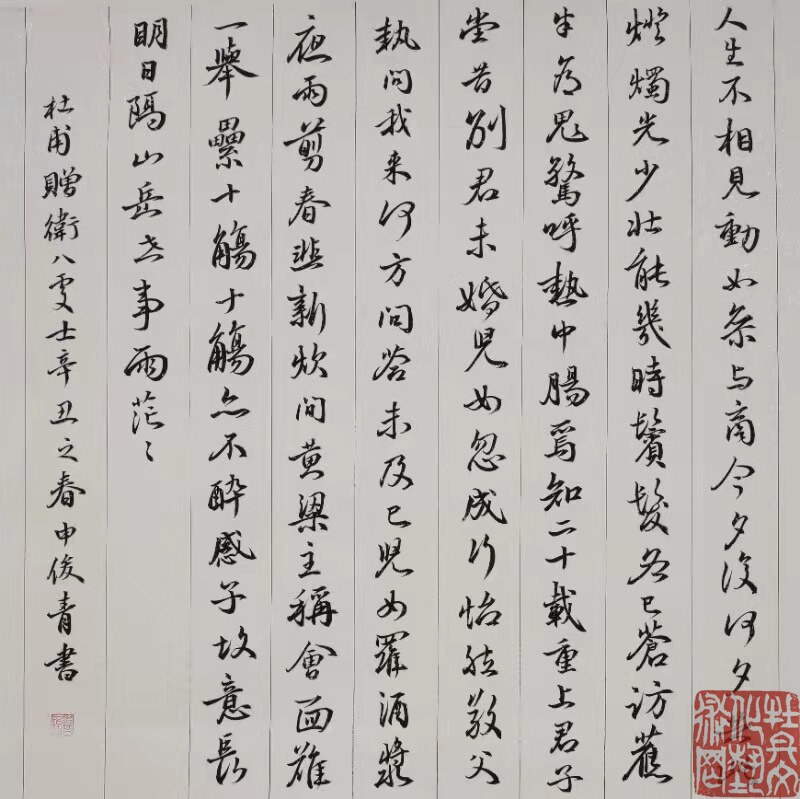 人生不相見動如參与商今夕復何夕共此
燈燭光少壯能幾時鬢髮各已蒼訪舊
半为鬼驚呼熱中腸焉知二十載重上君子
堂昔別君未婚兒女忽成行怡然敬父
執问我来何方问答未及已兒女羅酒漿
夜雨剪春韭新炊间黄粱主稱會面難
一舉纍十觴十觴亦不醉感子故意長
明日隔山岳世事兩茫々
杜甫贈衛八處士辛丑之春申俊青書